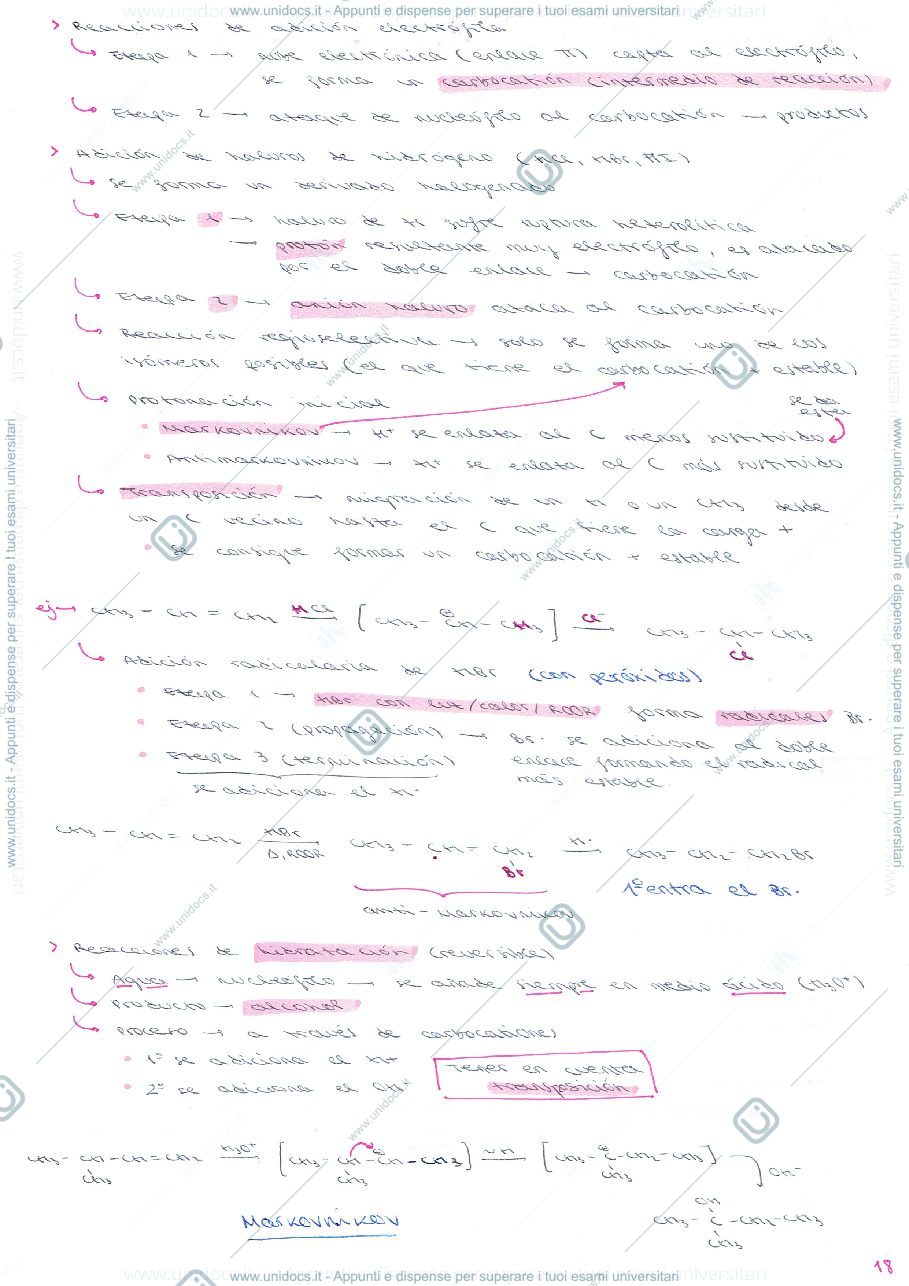 www.unidocs.it - Appunti e dispense per superare i tuoi esami universitari
> Reacciones de adición electrófila
Etapa 1 → nube electrónica (enlace π) capta al electrófilo,
se forma un carbocatión (intermedio de reacción)
Etapa 2 → ataque de nucleófilo al carbocatión → productos
> Adición de haluros de hidrógeno (HCl, HBr, HI)
Se forma un derivado halogenado
Etapa 1 → haluro de H sufre ruptura heterolítica
→ protón resultante muy electrófilo, es atacado
por el doble enlace → carbocatión
Etapa 2 → anión haluro ataca al carbocatión
Reacción regioselectiva → solo se forma uno de los
isómeros posibles (el que tiene el carbocatión + estable)
Protonación inicial
se da
este
• Markovnikov → H+ se enlaza al C menos sustituido
• Antimarkovnikov → H+ se enlaza al C más sustituido
Transposición → migración de un H o un CH3 desde
un C vecino hasta el C que tiene la carga +
• Se consigue formar un carbocatión + estable
ej → CH3 - CH = CH2 HCl → [CH3 - CH - CH3] Cl- → CH3 - CH - CH3
⊕
Cl
Adición radicalaria de HBr (con peróxidos)
• Etapa 1 → HBr con luz/calor/ROOR forma radicales Br·
• Etapa 2 (propagación) → Br· se adiciona al doble
enlace formando el radical
más estable
• Etapa 3 (terminación)
se adiciona el H·
CH3 - CH = CH2 HBr / Δ, ROOR CH3 - CH - CH2 H· → CH3 - CH2 - CH2Br
Br
1º entra el Br·
anti - Markovnikov
> Reacciones de hidratación (reversible)
Agua → nucleófilo → se añade siempre en medio ácido (H3O+)
Producto → alcohol
Proceso → a través de carbocationes
• 1º se adiciona el H+
• 2º se adiciona el OH-
Tener en cuenta
transposición
CH3 - CH - CH = CH2 H3O+ → [CH3 - CH - CH - CH3] → [CH3 - C - CH2 - CH3] OH-
CH3 CH3 CH3
OH
CH3 - C - CH2 - CH3
CH3
Markovnikov
18
www.unidocs.it - Appunti e dispense per superare i tuoi esami universitari